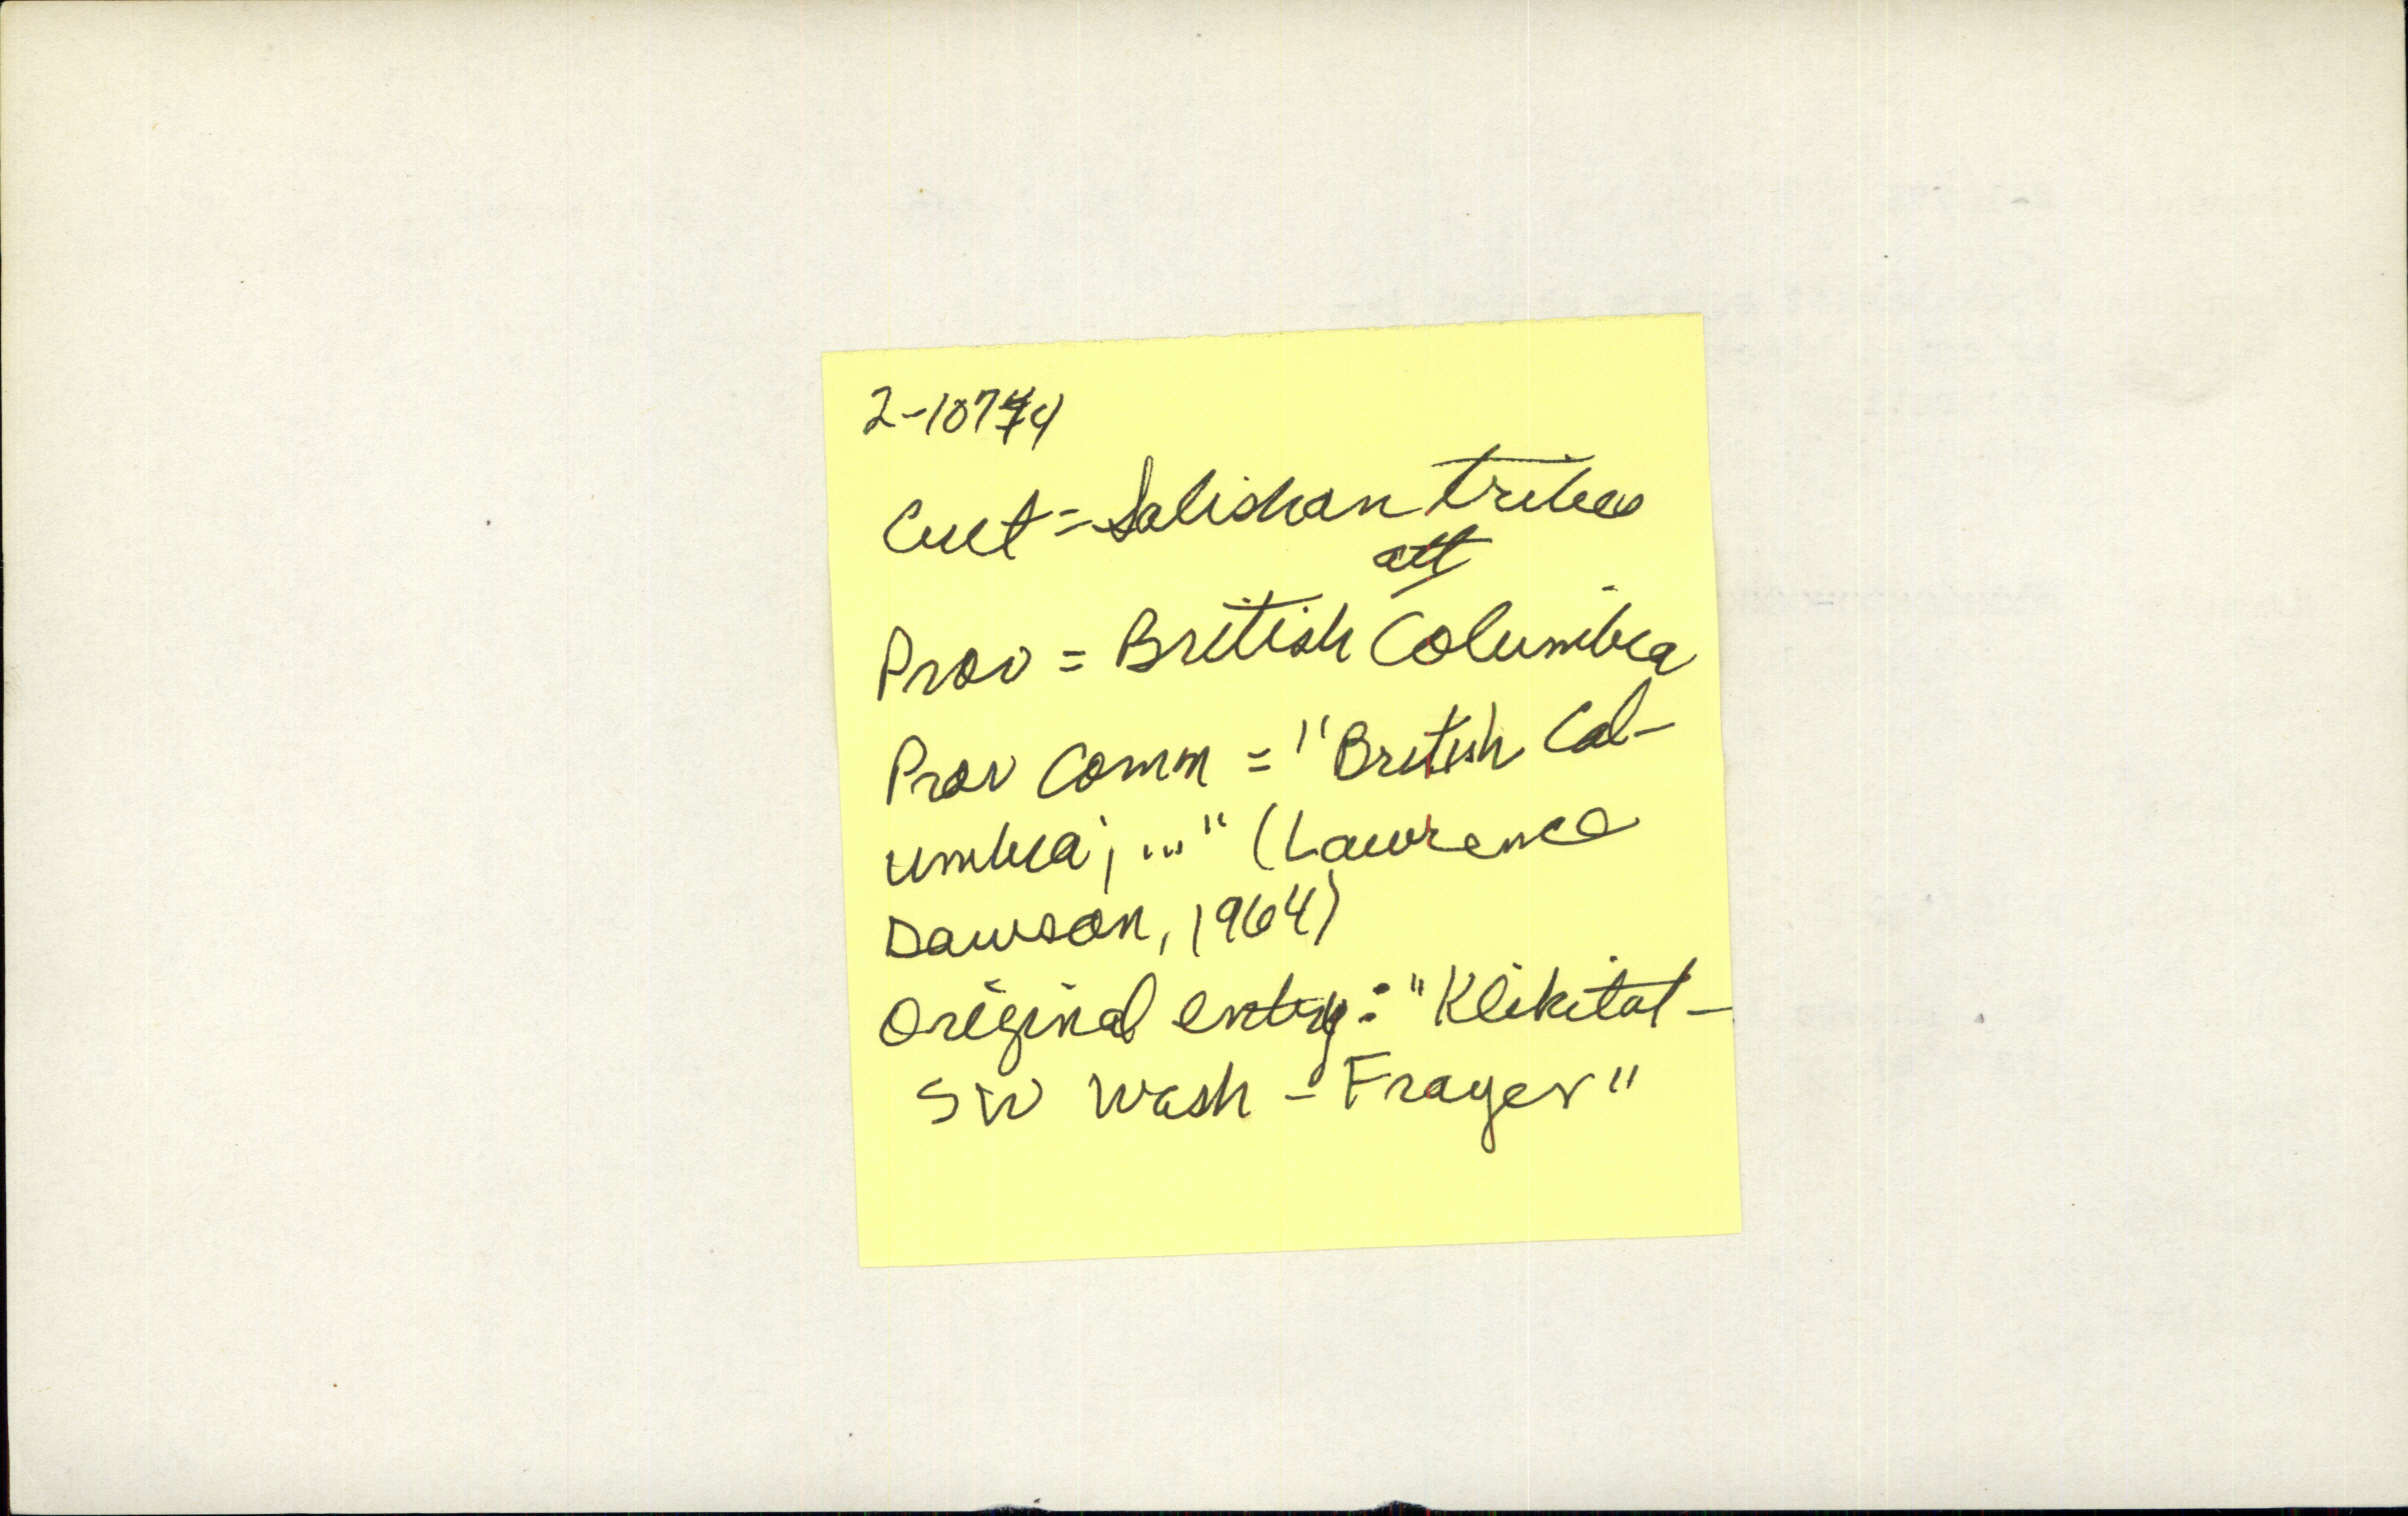 2-10744
Cult = Salishan tribes
att
Prov = British Columbia
Prov Comm = "British Col-
umbia; ..." (Lawrence
Dawson, 1964)
Original entry: "Klikitat -
SW Wash - Frayer"